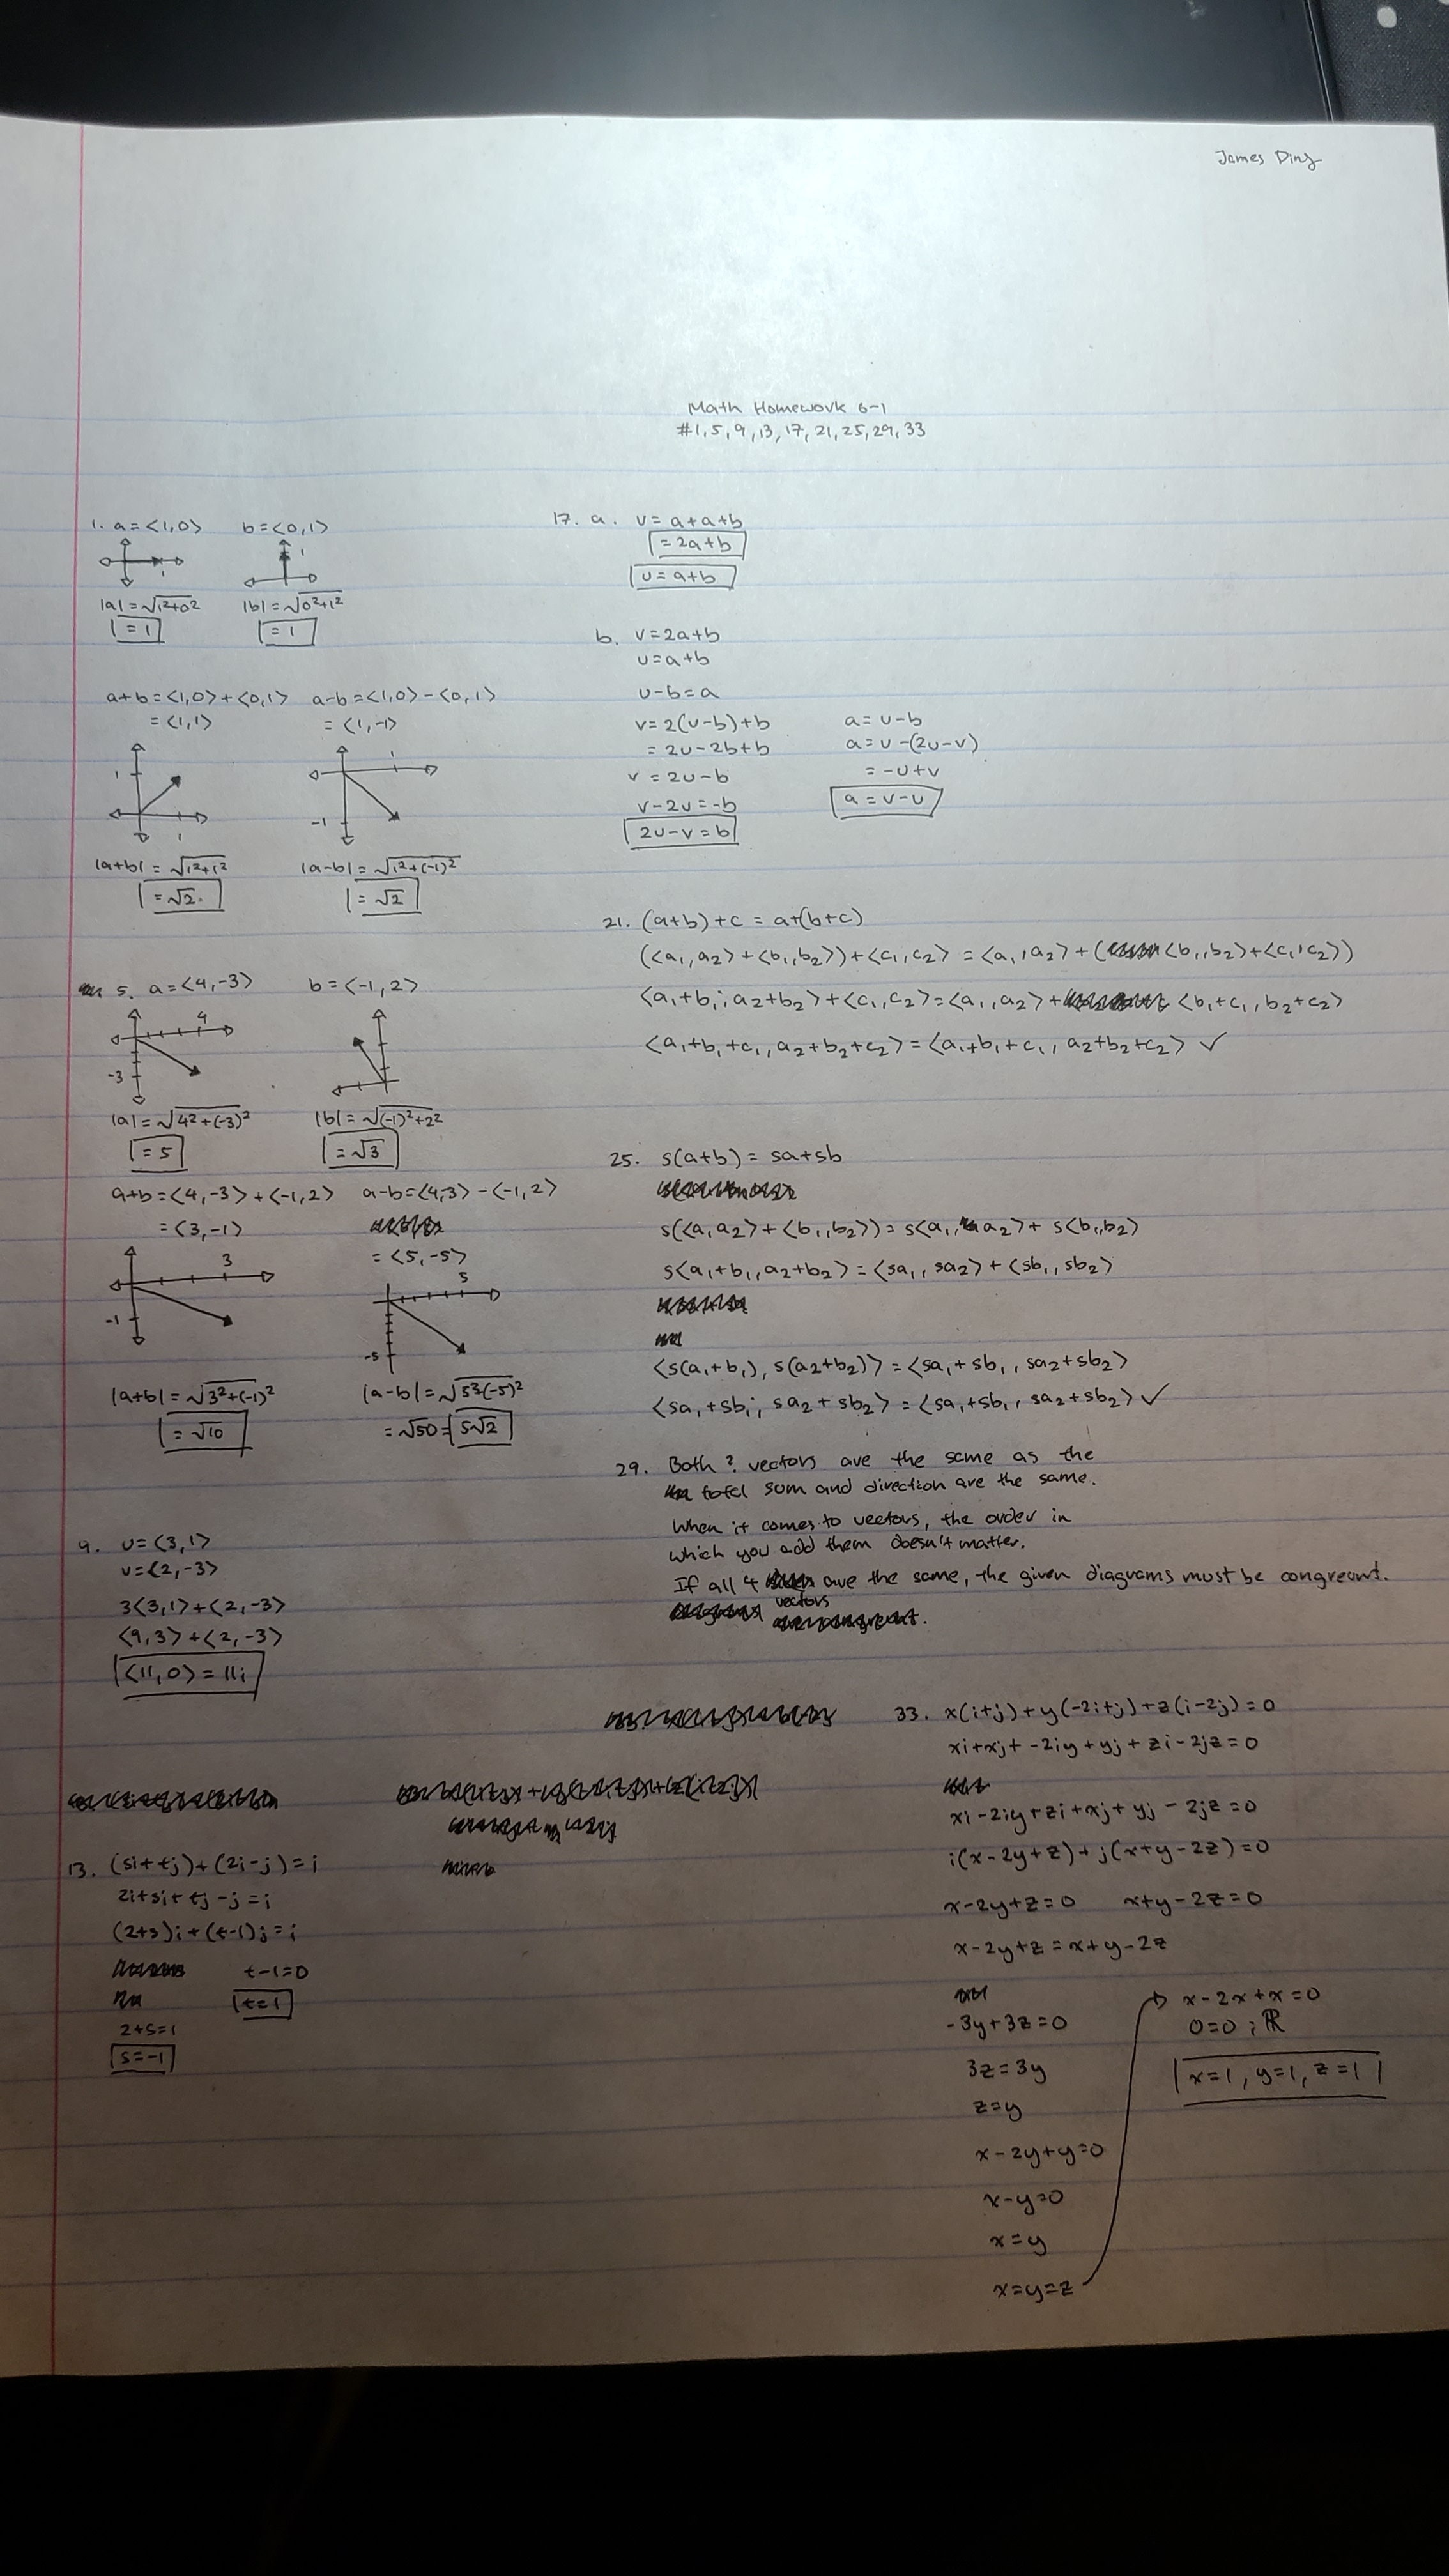 James Ding
Math Homework 6-1
#1, 5, 9, 13, 17, 21, 25, 29, 33
1. a=<1,0> b=<0,1>
1 1
|a|=√1²+0² |b|=√0²+1²
=1 =1
a+b=<1,0>+<0,1> a-b=<1,0>-<0,1>
=<1,1> =<1,-1>
1 1
1 -1
|a+b|=√1²+1² |a-b|=√1²+(-1)²
=√2 =√2
5. a=<4,-3> b=<-1,2>
4
-3
|a|=√4²+(-3)² |b|=√(-1)²+2²
=5 =√3
a+b=<4,-3>+<-1,2> a-b=<4,-3>-<-1,2>
=<3,-1>
=<5,-5>
3 5
-1 -5
|a+b|=√3²+(-1)² |a-b|=√5²(-5)²
=√10 =√50=5√2
9. u=<3,1>
v=<2,-3>
3<3,1>+<2,-3>
<9,3>+<2,-3>
<11,0>=11i
13. (si+tj)+(2i-j)=i
2i+si+tj-j=i
(2+s)i+(t-1)j=i
t-1=0
t=1
2+s=1
s=-1
17. a. v=a+a+b
=2a+b
u=a+b
b. v=2a+b
u=a+b
u-b=a
v=2(u-b)+b a=u-b
=2u-2b+b a=u-(2u-v)
v=2u-b =-u+v
v-2u=-b a=v-u
2u-v=b
21. (a+b)+c=a+(b+c)
(<a₁,a₂>+<b₁,b₂>)+<c₁,c₂>=<a₁,a₂>+(<b₁,b₂>+<c₁,c₂>)
<a₁+b₁,a₂+b₂>+<c₁,c₂>=<a₁,a₂>+<b₁+c₁,b₂+c₂>
<a₁+b₁+c₁,a₂+b₂+c₂>=<a₁+b₁+c₁,a₂+b₂+c₂>✓
25. s(a+b)=sa+sb
s(<a₁,a₂>+<b₁,b₂>)=s<a₁,a₂>+s<b₁,b₂>
s<a₁+b₁,a₂+b₂>=<sa₁,sa₂>+<sb₁,sb₂>
<s(a₁+b₁),s(a₂+b₂)>=<sa₁+sb₁,sa₂+sb₂>
<sa₁+sb₁,sa₂+sb₂>=<sa₁+sb₁,sa₂+sb₂>✓
29. Both ? vectors are the same as the
total sum and direction are the same.
When it comes to vectors, the order in
which you add them doesn't matter.
If all 4 are the same, the given diagrams must be congreant.
vectors
33. x(i+j)+y(-2i+j)+z(i-2j)=0
xi+xj+-2iy+yj+zi-2jz=0
xi-2iy+zi+xj+yj-2jz=0
i(x-2y+z)+j(x+y-2z)=0
x-2y+z=0 x+y-2z=0
x-2y+z=x+y-2z
-3y+3z=0
3z=3y
z=y
x-2y+y=0
x-y=0
x=y
x=y=z
x-2x+x=0
0=0; ℝ
x=1, y=1, z=1